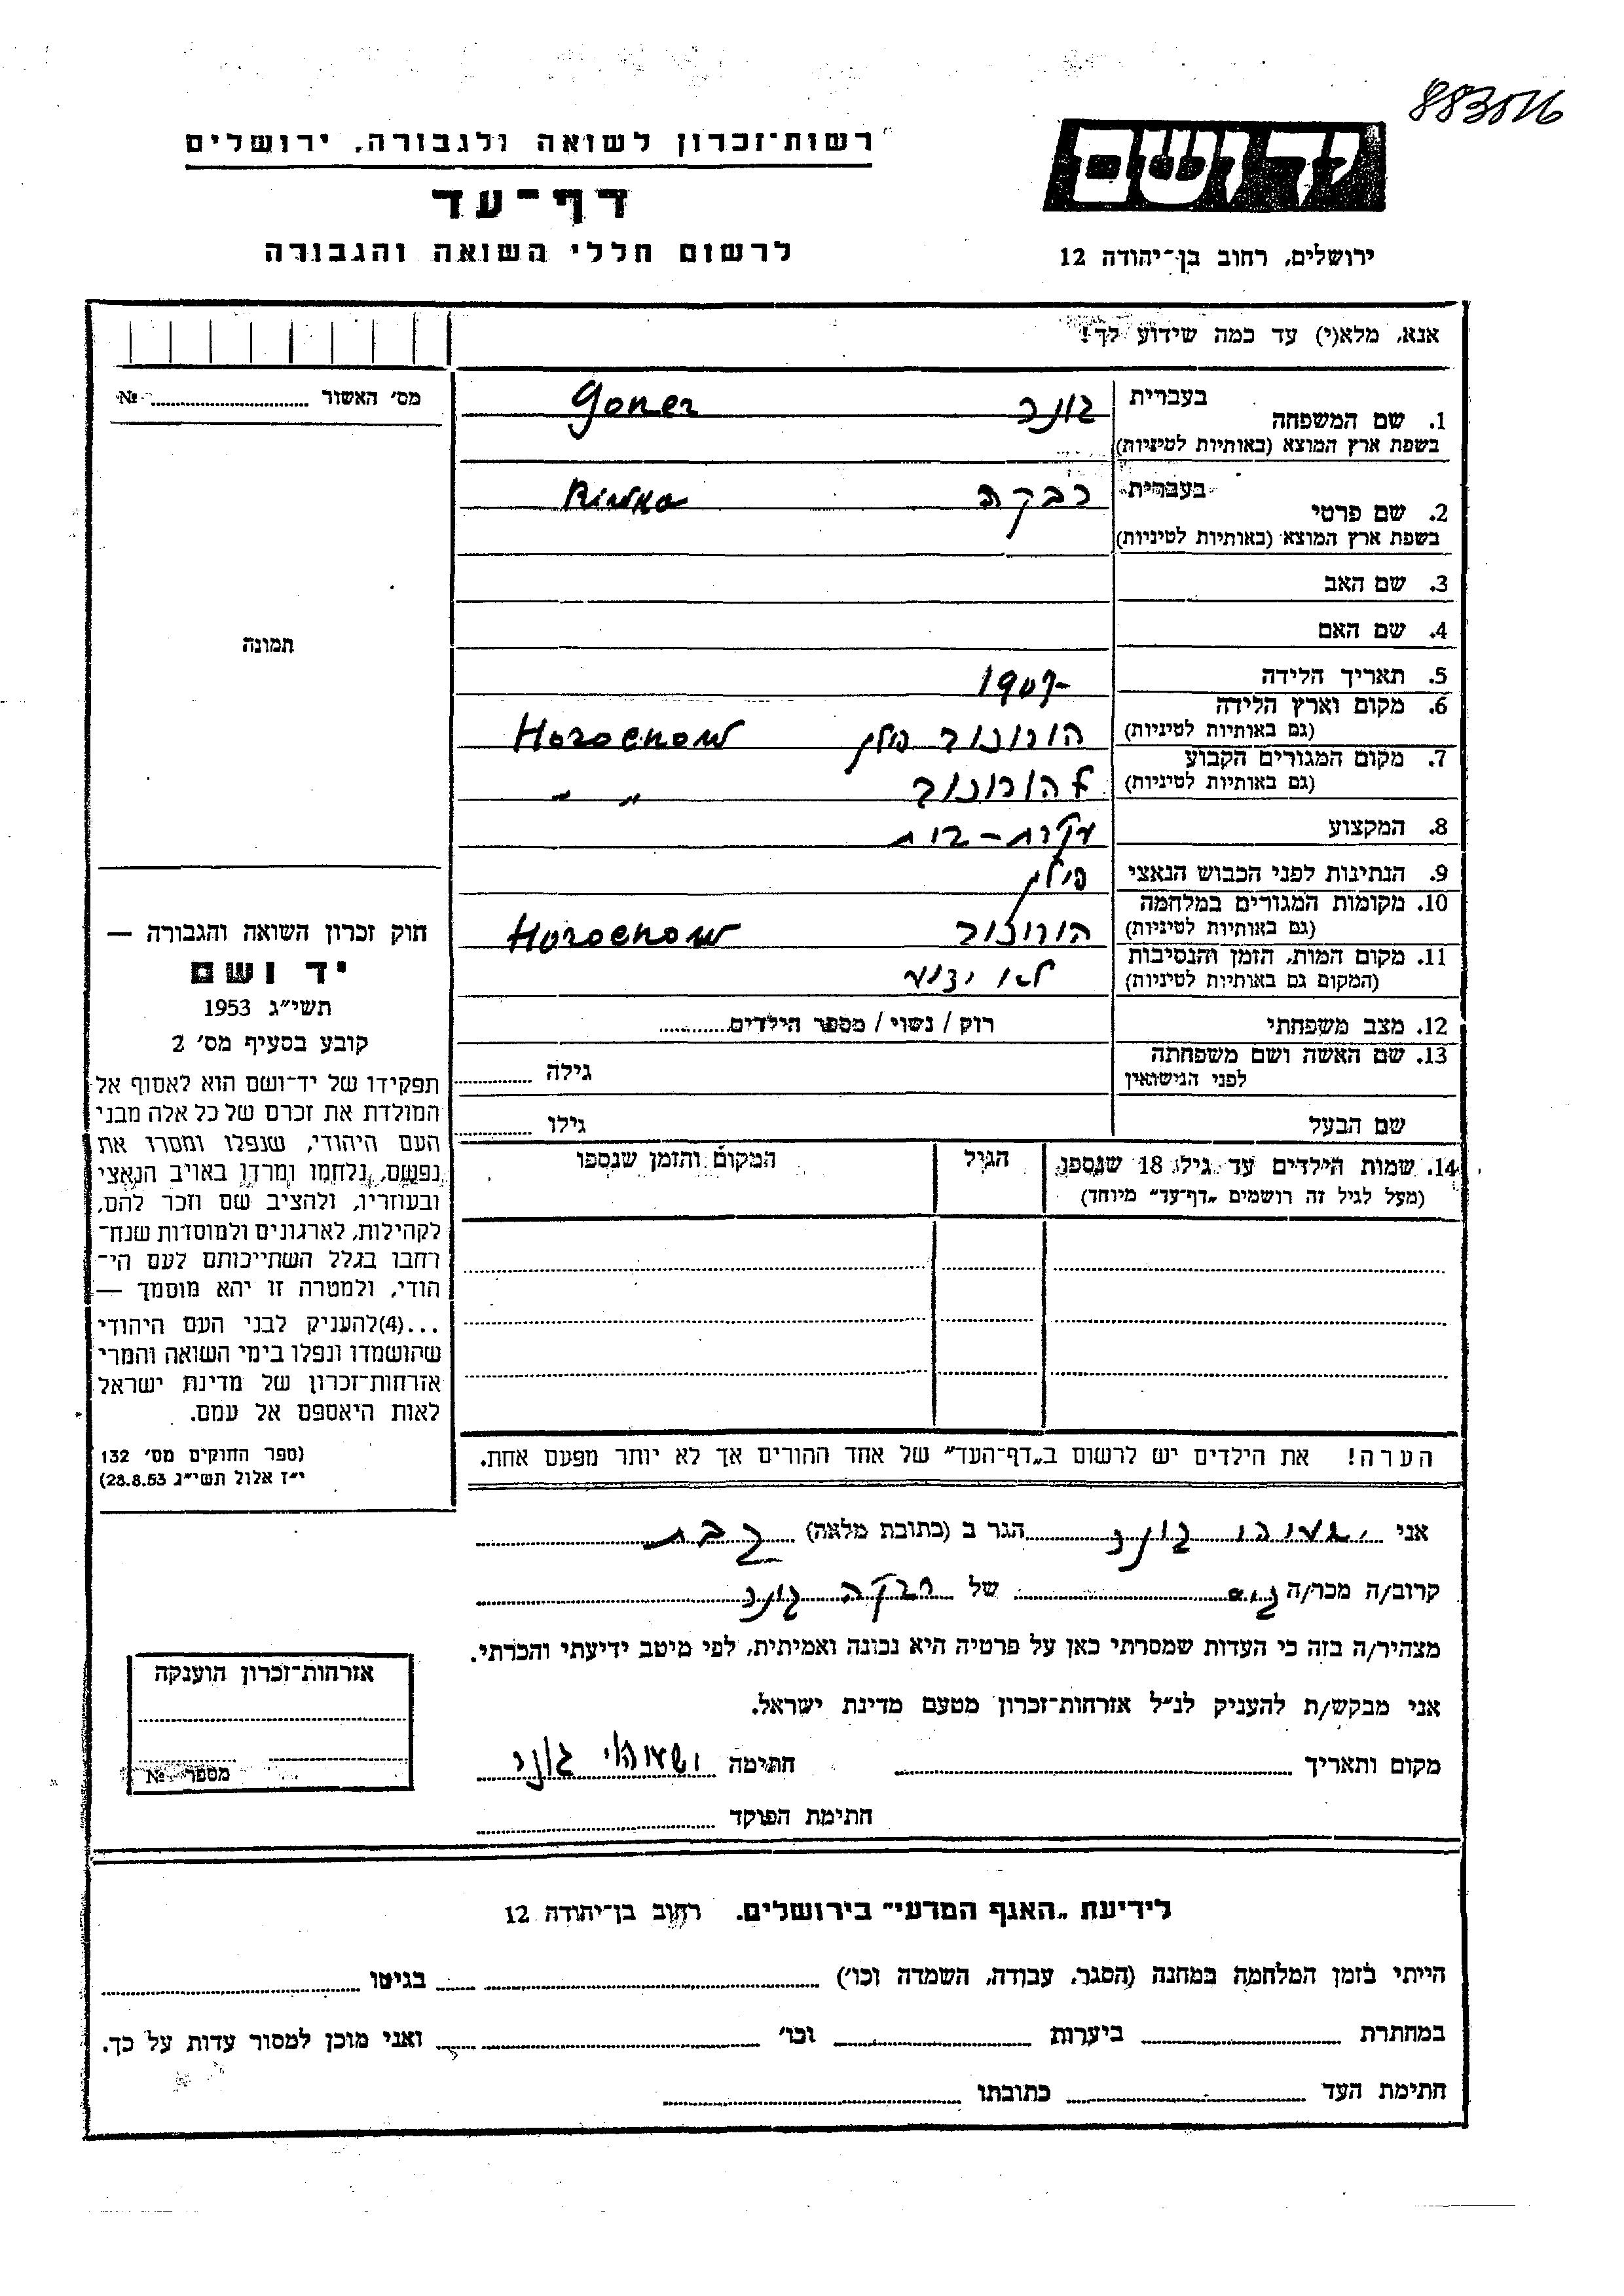 883516
רשות־זכרון לשואה ולגבורה, ירושלים
דף־עד
לרשום חללי השואה והגבורה
ידושם
ירושלים, רחוב בן־יהודה 12
אנא, מלא(י) עד כמה שידוע לך!
מס׳ האשור № ........
1. שם המשפחה בעברית גונר Goner
בשפת ארץ המוצא (באותיות לטיניות)
2. שם פרטי בעברית רבקה Riwka
בשפת ארץ המוצא (באותיות לטיניות)
3. שם האב
4. שם האם
תמונה
5. תאריך הלידה 1907-
6. מקום וארץ הלידה
(גם באותיות לטיניות) הורוכוב פולין Horochow
7. מקום המגורים הקבוע
(גם באותיות לטיניות) הורוכוב " "
8. המקצוע עקרת-בית
9. הנתינות לפני הכבוש הנאצי פולין
10. מקומות המגורים במלחמה
(גם באותיות לטיניות) הורוכוב Horochow
11. מקום המות, הזמן והנסיבות
(המקום גם באותיות לטיניות) לא ידוע
12. מצב משפחתי רוק / נשוי / מספר הילדים........
13. שם האשה ושם משפחתה
לפני הנישואין גילה ........
שם הבעל גילו ........
14. שמות הילדים עד גיל 18 שנספו הגיל המקום והזמן שנספו
(מעל לגיל זה רושמים „דף־עד״ מיוחד)
חוק זכרון השואה והגבורה —
יד ושם
תשי״ג 1953
קובע בסעיף מס׳ 2
תפקידו של יד־ושם הוא לאסוף אל
המולדת את זכרם של כל אלה מבני
העם היהודי, שנפלו ומסרו את
נפשם, נלחמו ומרדו באויב הנאצי
ובעוזריו, ולהציב שם וזכר להם,
לקהילות, לארגונים ולמוסדות שנח־
רחבו בגלל השתייכותם לעם הי־
הודי, ולמטרה זו יהא מוסמך —
...(4)להעניק לבני העם היהודי
שהושמדו ונפלו בימי השואה והמרי
אזרחות־זכרון של מדינת ישראל
לאות היאספם אל עמם.
(ספר החוקים מס׳ 132
י״ז אלול תשי״ג 28.8.53)
הערה! את הילדים יש לרשום ב„דף־העד״ של אחד ההורים אך לא יותר מפעם אחת.
אני גונר הגר ב (כתובת מלאה)
קרוב/ה מכר/ה של רבקה גונר
מצהיר/ה בזה כי העדות שמסרתי כאן על פרטיה היא נכונה ואמיתית, לפי מיטב ידיעתי והכרתי.
אני מבקש/ת להעניק לנ״ל אזרחות־זכרון מטעם מדינת ישראל.
מקום ותאריך ........ חתימה גונר
חתימת הפוקד ........
אזרחות־זכרון הוענקה
מספר №
לידיעת „האגף המדעי״ בירושלים. רחוב בן־יהודה 12
הייתי בזמן המלחמה במחנה (הסגר, עבודה, השמדה וכו׳) ........ בגיטו ........
במחתרת ........ ביערות ........ וכו׳ ........ ואני מוכן למסור עדות על כך.
חתימת העד ........ כתובתו ........